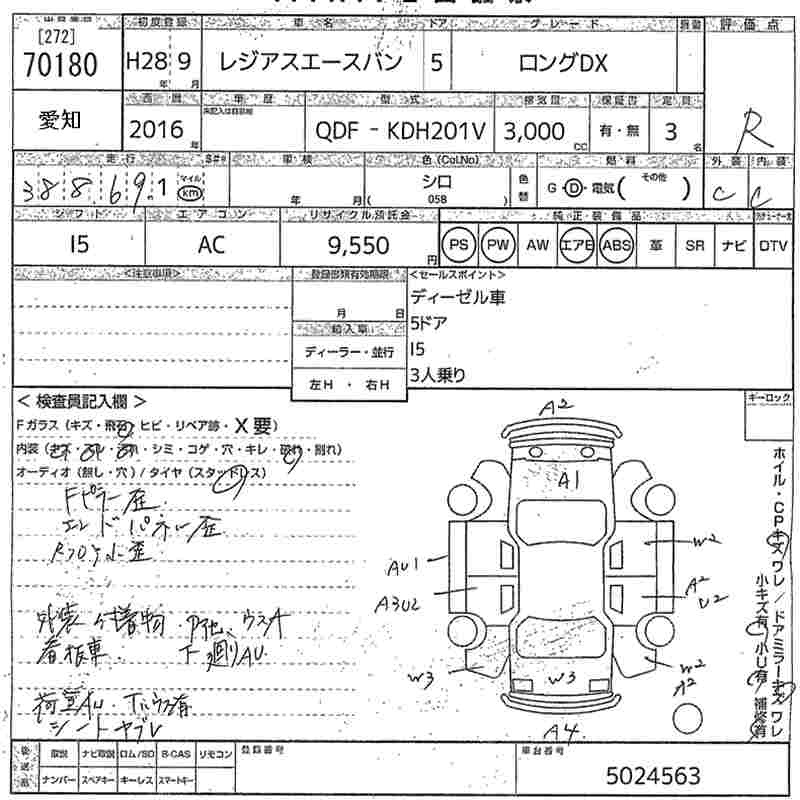 初度登録 車名 ドア グレード 評価点
[272]
70180 H28 年 9 月 レジアスエースバン 5 ロングDX
愛知 西暦 車歴 型式 排気量 保証書 定員
2016 年 QDF - KDH201V 3,000 CC 有・無 3 名 R
走行 車検 色(Col.No) 燃料 外装 内装
388 69.1 マイル km 年 月 ( シロ 058 ) 色替 G・D・電気( その他 ) C C
シフト エアコン リサイクル預託金 純正装備品
I5 AC 9,550 円 PS PW AW エアB ABS 革 SR ナビ DTV
<注意事項> 登録書類有効期限 <セールスポイント>
月 日 ディーゼル車
輸入車 5ドア
ディーラー・並行 I5
左H ・ 右H 3人乗り
< 検査員記入欄 > キーロック
Fガラス (キズ・飛石・ヒビ・リペア跡・X要)
内装 (・シミ・コゲ・穴・キレ・破れ・割れ)
オーディオ (無し・穴) / タイヤ (スタッドレス)
Fピラー歪
エンドパネル歪
外装 付着物 ウスA
看板車 下廻りAU
荷室AU 有
シートヤブレ
A2
A1
AU1 W2
A3U2 A2 U2
W3 W3 W2 A2
A4
ホイル・CPキズ ワレ / ドアミラーキズ ワレ
小キズ有 小U有 補修有
後送品 取説 ナビ取説 ロム/SD B-CAS リモコン 登録番号 車台番号
ナンバー スペアキー キーレス スマートキー 5024563